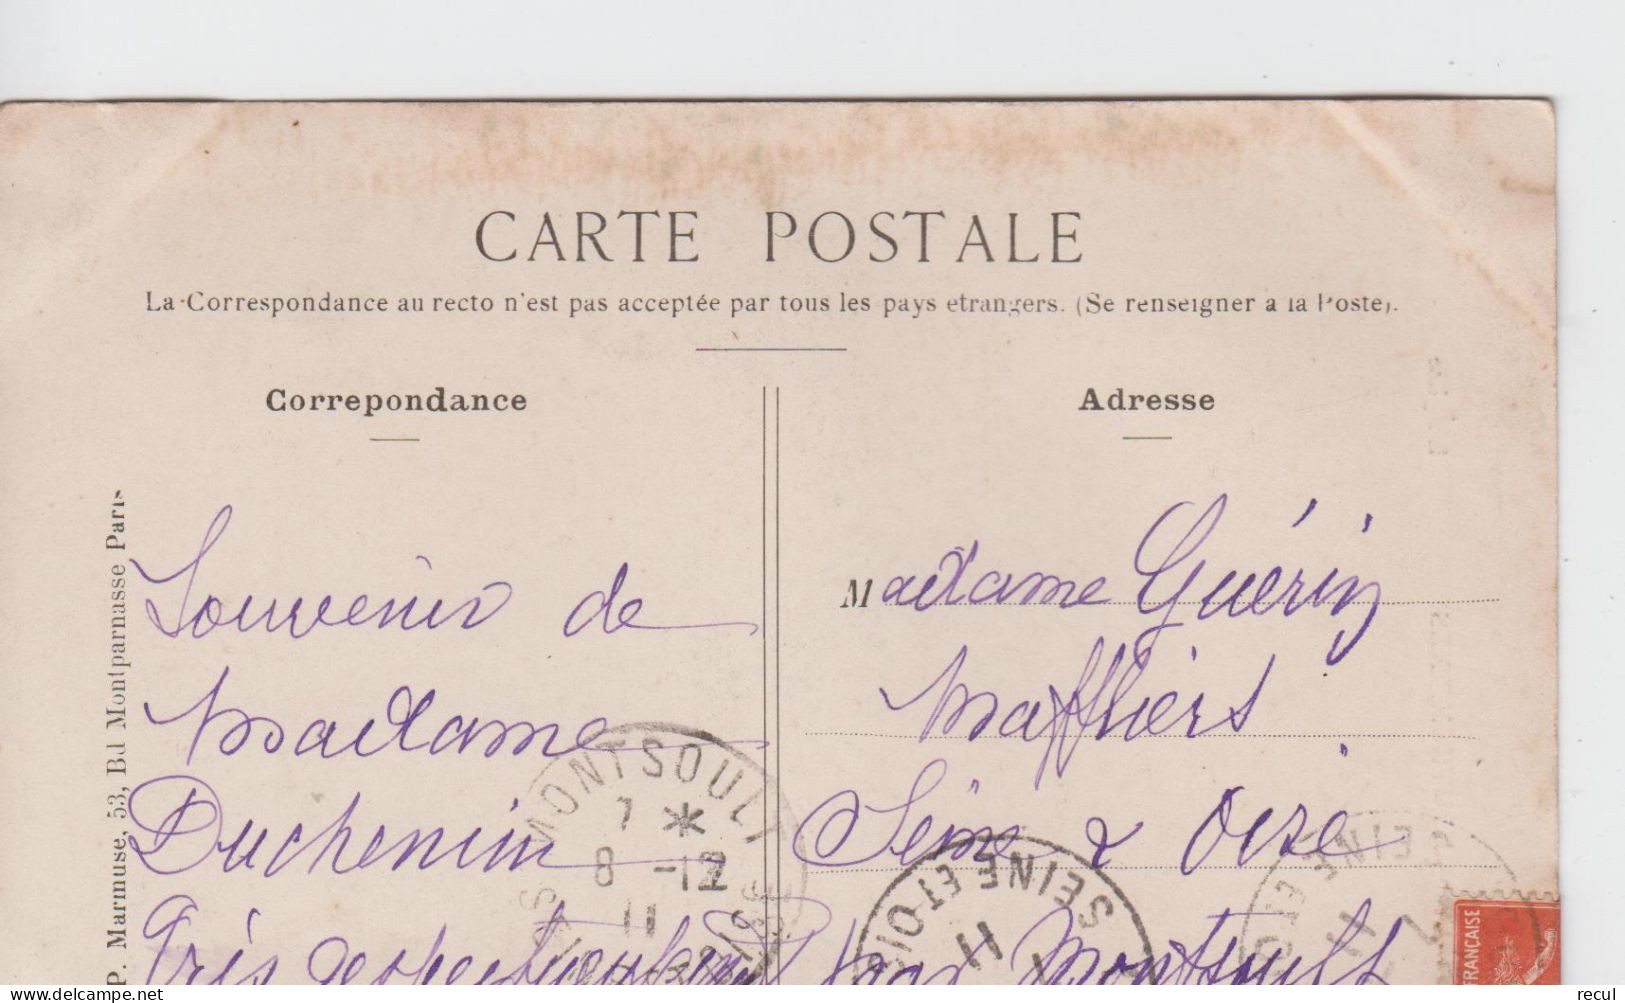 CARTE POSTALE
La Correspondance au recto n'est pas acceptée par tous les pays etrangers. (Se renseigner a la Poste).
Correpondance
Souvenir de
Madame
Duchenin
Très respectueux
P. Marmuse, 53, Bd Montparnasse Paris
Adresse
Madame Guérin
Maffliers
Seine & Oise
par Montsoult
MONTSOULT
7 *
8 -12
11
SEINE ET OISE
11
SEINE ET O
11
FRANÇAISE
recul